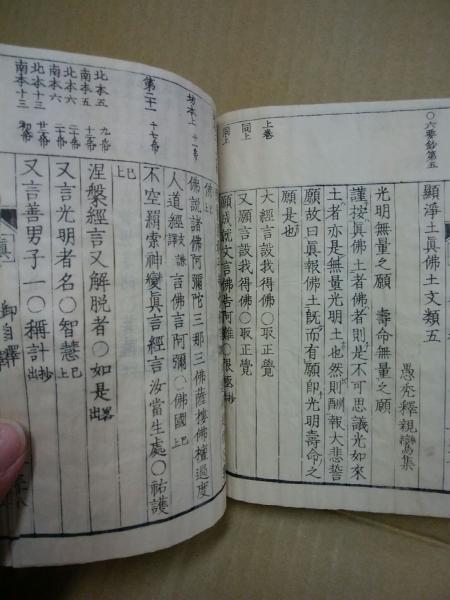 ○六要鈔第五
顯淨土眞佛土文類五
愚禿釋親鸞集
光明無量之願 壽命無量之願
謹按眞佛土者佛者則是不可思議光如來
土者亦是無量光明土也然則酬報大悲誓
願故曰眞報佛土既而有願即光明壽命之
願是也
上卷
大經言設我得佛○取正覺
同上
又願言設我得佛○取正覺
同上
願成就文言佛告阿難○限極抄
佛說諸佛阿彌陀三那三佛薩樓佛檀過度
人道經 言佛言阿彌○佛國已上
十七帋
不空羂索神變眞言經言汝當生處○祐護
已上
北本五 九帋
南本五 十二帋
涅槃經言又解脫者○如是
北本六
南本六
又言光明者名○智慧已上
北本十三
南本十三 初帋
又言善男子一○稱計抄出
御自釋